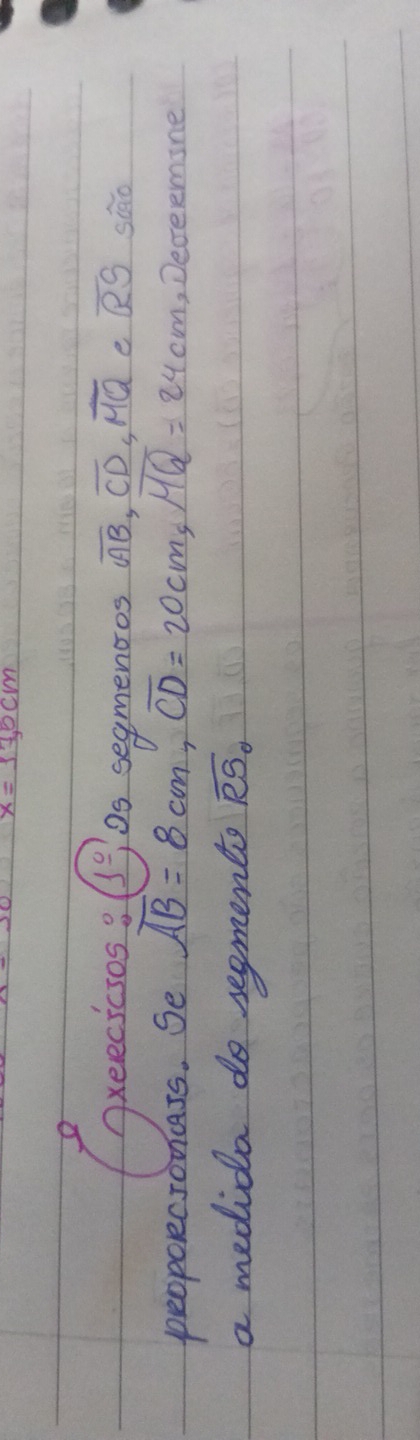 x = 37,5 cm
Exercícios: 1º Os segmentos AB, CD, MQ e RS são
proporcionais. Se AB = 8 cm, CD = 20 cm, MQ = 24 cm, Determine
a medida do segmento RS.